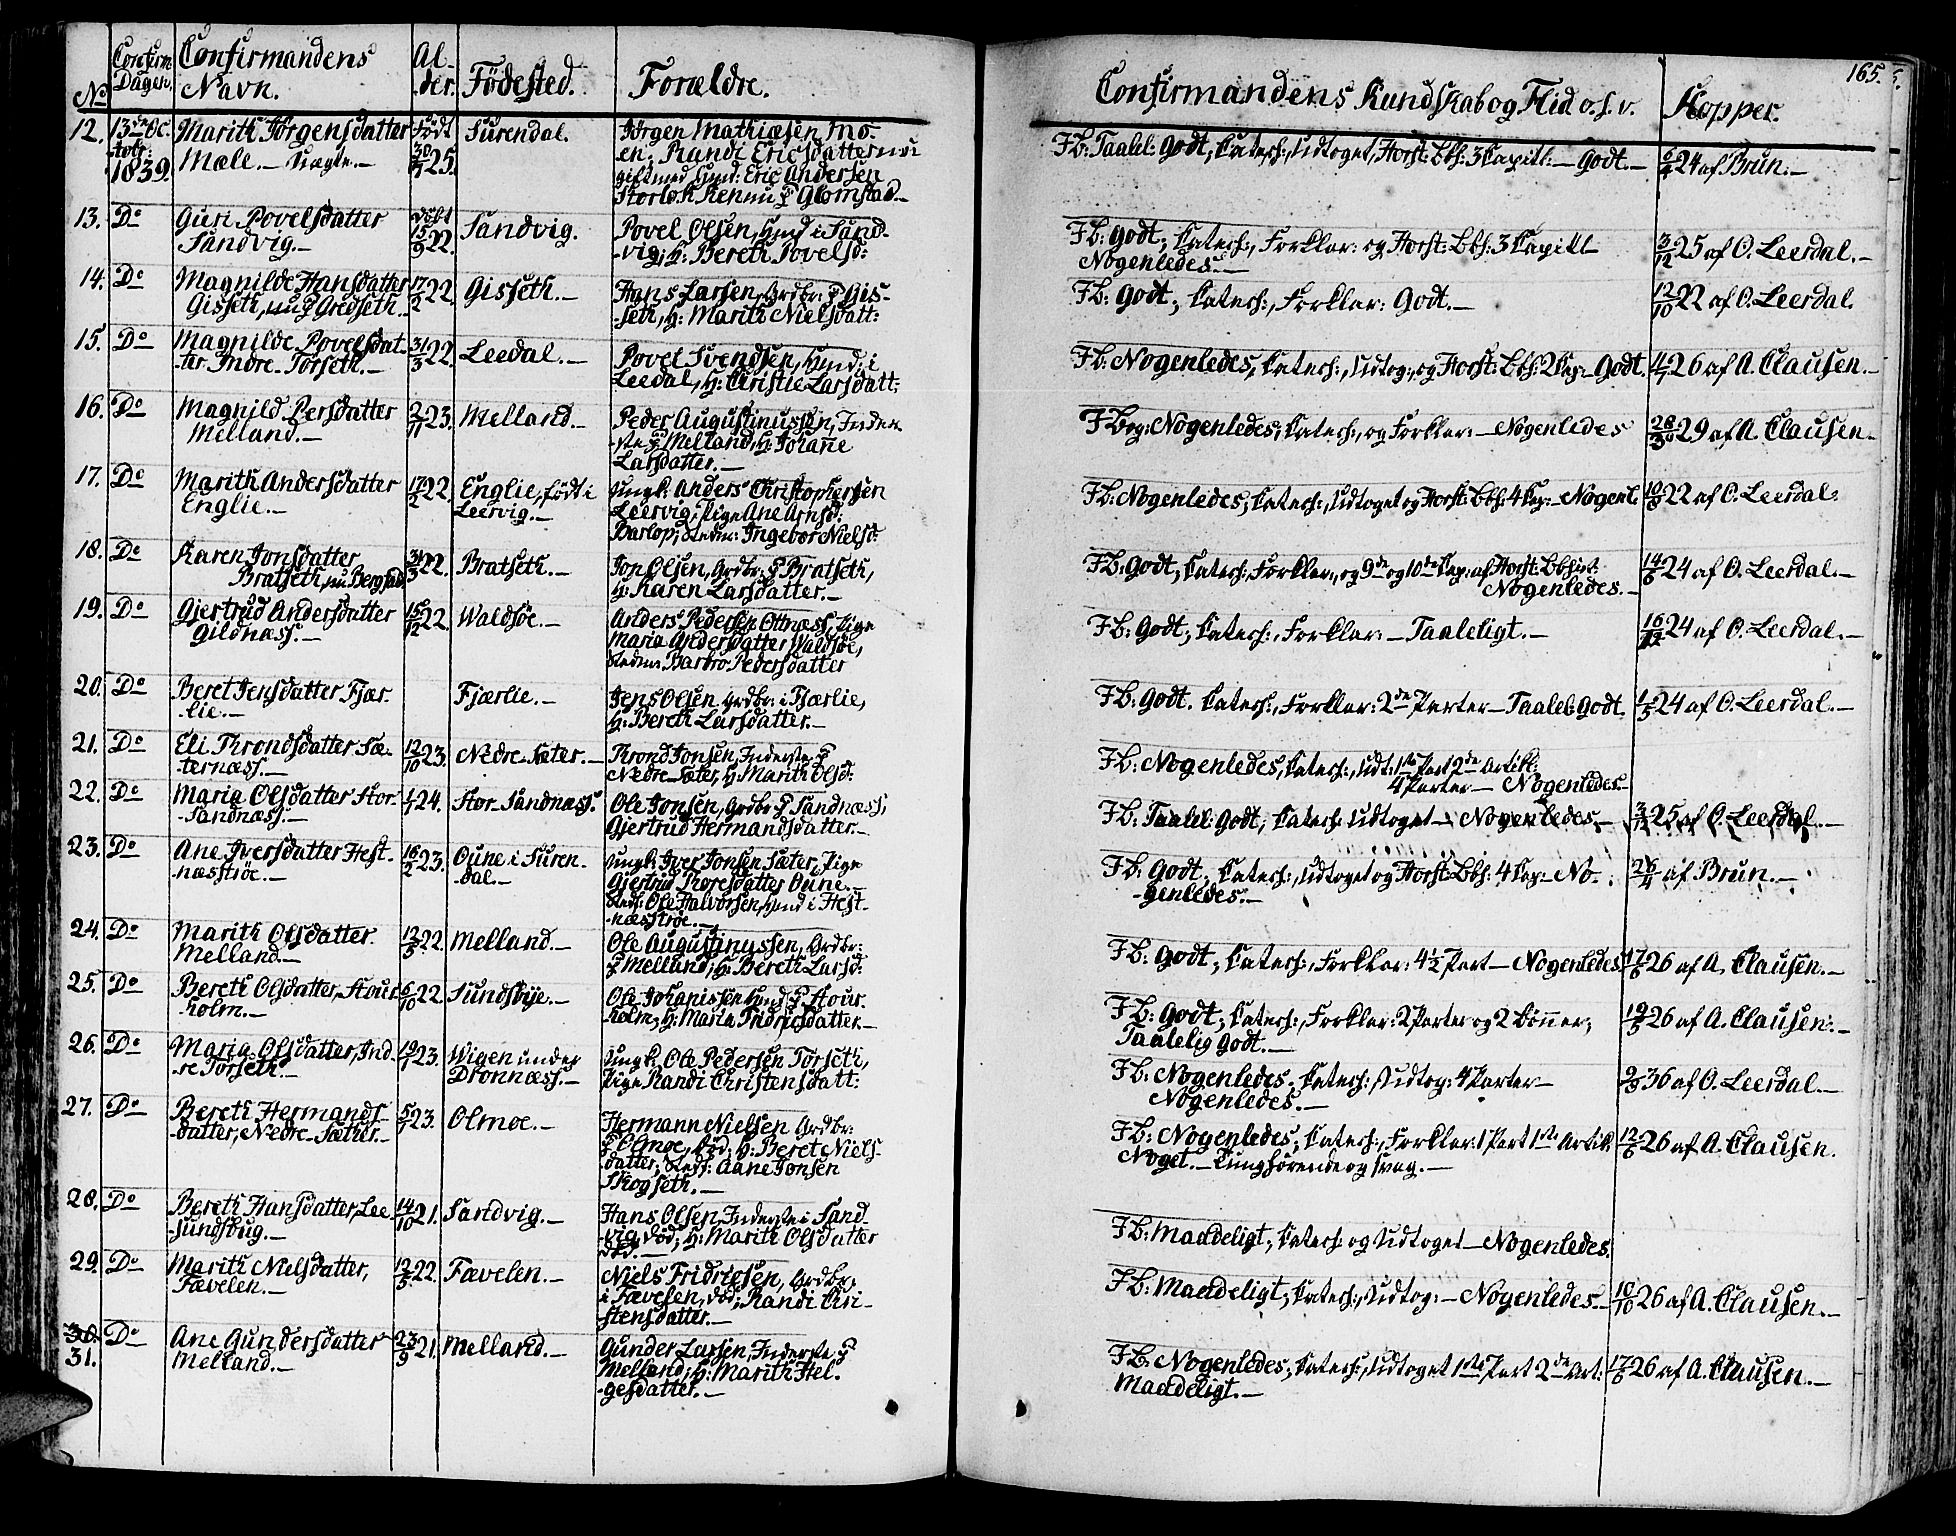 165.
No
Confirm.
Dagen.
Confirmandens
Navn.
Al-
der.
Födested.
Forældre.
Confirmandens Kundskab og Flid o.s.v.
Kopper.
12. 13de Oc-
tobr:
1839.
Marith Jörgensdatter
Mæle.
Född
30/7 25.
Surendal.
Jörgen Mathiæsen Mo-
en. Randi Ericsdatter nu
gift med Huusmd: Eric Andersen
Glomstad.
Fb: Taalel: Godt, Catech:, Udtoget, Horst: Bbh: 3 Capitl: – Godt. –
6/4 24 af Brun. –
13. Do
Guri Povelsdatter
Sandvig. –
döbt
15/9 22.
Sandvig.
Povel Olsen, Huusmd i Sand-
vig, H: Bereth Povelsd:
Fb: Godt, Catech:, Forklar: og Horst: Bbh: 3 Capitl
Nogenledes. –
3/12 25 af O. Leerdal. –
14. Do
Magnilde Hansdatter
Gisseth, nu p Gredseth.
17/2 22.
Gisseth. –
Hans Larsen, Grdbr: p Gis-
seth, H: Marith Nielsdatt:
Fb: Godt, Catech:, Forklar: Godt. –
12/10 22 af O. Leerdal.
15. Do
Magnilde Povelsdat-
ter Indre-Torseth. –
31/3 22.
Leedal. –
Povel Svendsen, Huusmd: i
Leedal, H: Christie Larsdatt:
Fb: Nogenledes, Catech:, Udtog:, og Horst: Bbh: 2 Cap: – Godt.
4/7 26 af A. Clausen. –
16. Do
Magnild Persdatter
Melland. –
2/11 23.
Melland. –
Peder Augustinussen, Inder-
ste p Melland, H: Johane
Larsdatter. –
Fb: Nogenledes, Catech:, og Forklar: – Nogenledes
29 af A. Clausen. –
17. Do
Marith Andersdatter
Englie. –
17/2 22.
Englie, födt i
Leervig. –
Ungk: Anders Christophersen
Leervig; Pige Ane Arnsd:
Barlop; Stedm: Ingebor Nielsd:
Fb: Nogenledes, Catech:, Udtoget og Horst: Bbh: 4 Cap: – Nogenl:
10/8 22 af O. Leerdal.
18. Do
Karen Jonsdatter
Bratseth, nu Bergstad
31/3 22.
Bratseth. –
Jon Olsen, Grdbr: p Bratseth,
H: Karen Larsdatter. –
Fb: Godt, Catech:, Forklar:, og 9de og 10de Cap: af Horst: Bbhist:
Nogenledes. –
14/6 24 af O. Leerdal. –
19. Do
Gjertrud Andersdatter
Gildnæss. –
15/12 22.
Waldsöe. –
Anders Pedersen Ottnæss, Pige
Maria Andersdatter Waldsöe,
Stedm: Barbro Pedersdatter
Fb: Godt, Catech:, Forklar: – Taaleligt. –
16/12 24 af O. Leerdal. –
20. Do
Beret Jensdatter Fjær-
lie. –
Fjærlie. –
Jens Olsen, Grdbr: i Fjærlie,
H: Bereth Larsdatter. –
Fb: Godt. Catech:, Forklar: 2de Parter – Taalel: Godt.
1/5 24 af O. Leerdal. –
21. Do
Eli Throndsdatter Sæ-
ternæss. –
12/10 23.
Nedre-Sæter. –
Thrond Jonsen, Inderste p
Nedre-Sæter, H: Marith Olsd:
Fb: Nogenledes, Catech:, Udt: 1ste Part 2de Artikl:
4 Parter – Nogenledes. –
22. Do
Maria Olsdatter Stor-
Sandnæss. –
1/1 24.
Stor-Sandnæss.
Ole Jonsen, Grdbr p Sandnæss,
Gjertrud Hermandsdatter. –
Fb: Taalel: Godt, Catech: Udtoget – Nogenledes. –
3/12 25 af O. Leerdal. –
23. Do
Ane Iversdatter Hest-
næsströe. –
16/2 23.
Oune i Suren-
dal. –
Ungk: Iver Jonsen Sæter, Pige
Gjertrud Thoresdatter Oune. –
Stedf: Ole Halvorsen, Huusmd i Hest-
næsströe. –
Fb: Godt, Catech:, Udtoget og Horst: Bbh: 4 Cap: – No-
genledes. –
26/4 af Brun. –
24. Do
Marith Olsdatter
Melland. –
12/5 22.
Melland. –
Ole Augustinussen, Grdbr:
p Melland, H: Bereth Larsd:
Fb: Godt, Catech:, Forklar: 4½ Part – Nogenledes.
17/6 26 af A. Clausen. –
25. Do
Bereth Olsdatter, Stour-
holm. –
6/10 22.
Sundsbye. –
Ole Johanissen Huusmd p Stour-
holm, H: Maria Fridricsdatter. –
Fb: Godt, Catech:, Forklar: 2 Parter og 2 Bönner,
Taalelig Godt. –
19/5 26 af A. Clausen. –
26. Do
Maria Olsdatter, Ind-
re Torseth. –
19/7 23.
Wigen under
Dronnæss. –
Ungk: Ole Pedersen Torseth,
Pige Randi Christensdatt:
Fb: Nogenledes, Catech:, Udtog: 4 Parter –
Nogenledes. –
2/9 36 af O. Leerdal. –
27. Do
Bereth Hermands-
datter, Nedre-Sæther. –
5/7 23.
Olmoe. –
Hermann Nielsen Grdbr:
p Olmoe, död; H: Beret Niels-
datter; Stedf: Aane Jonsen
Skogseth. –
Fb: Nogenledes, Catech:, Forklar: 1 Part 1ste Artik:
Noget. – Tunghörende og svag. –
12/6 26 af A. Clausen.
28. Do
Bereth Hansdatter, Lee-
Sundsbug. –
14/10 21.
Sandvig. –
Hans Olsen, Inderste i Sand-
vig, död; H: Marith Olsdatter
död. –
Fb: Maadeligt, Catech: og Udtoget – Nogenledes.
29. Do
Marith Nielsdatter,
Fævelen. –
12/5 22.
Fævelen. –
Niels Fridricsen, Grdbr:
i Fævelen, död; Randi Chri-
stensdatter. –
Fb: Maadeligt, Catech:, Udtog: – Nogenledes. –
10/10 26 af A. Clausen. –
30.
31. Do
Ane Gundersdatter
Melland. –
23/9 21.
Melland. –
Gunder Larsen, Inderste p
Melland; H: Marith Hel-
gesdatter. –
Fb: Nogenledes, Catech:, Udtoget 1ste Part 2de Art:
Maadeligt. –
17/6 26 af A. Clausen. –